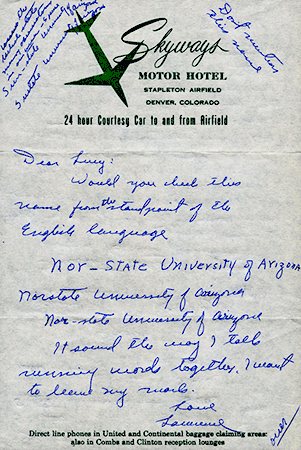 Don't mention
this name
Skyways
MOTOR HOTEL
STAPLETON AIRFIELD
DENVER, COLORADO
24 hour Courtesy Car to and from Airfield
Dear Lucy:
Would you check this
name from the standpoint of the
English language
Nor-State University of Arizona
Norstate University of Arizona
Nor-state University of Arizona
It sound the way I talk
running words together. I want
to leave my mark.
Love
Lawrence
over
Direct line phones in United and Continental baggage claiming areas:
also in Combs and Clinton reception lounges